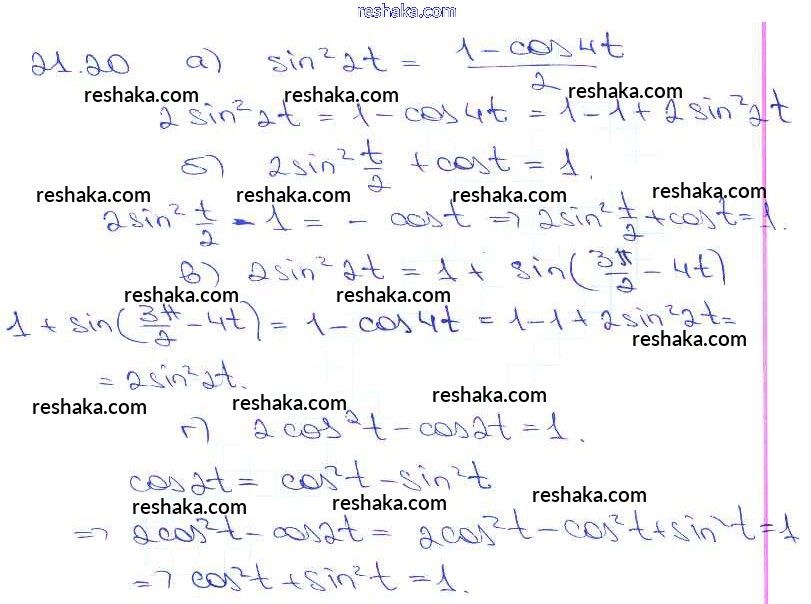 reshaka.com
21.20 а) sin² 2t = (1 - cos 4t)/2
reshaka.com reshaka.com reshaka.com
2 sin² 2t = 1 - cos 4t = 1 - 1 + 2 sin² 2t
б) 2 sin² t/2 + cos t = 1.
reshaka.com reshaka.com reshaka.com reshaka.com
2 sin² t/2 - 1 = - cos t => 2 sin² t/2 + cos t = 1.
в) 2 sin² 2t = 1 + sin(3π/2 - 4t)
reshaka.com reshaka.com
1 + sin(3π/2 - 4t) = 1 - cos 4t = 1 - 1 + 2 sin² 2t =
reshaka.com
= 2 sin² 2t.
reshaka.com reshaka.com reshaka.com
г) 2 cos² t - cos 2t = 1.
cos 2t = cos² t - sin² t
reshaka.com reshaka.com reshaka.com
=> 2 cos² t - cos 2t = 2 cos² t - cos² t + sin² t = 1
=> cos² t + sin² t = 1.